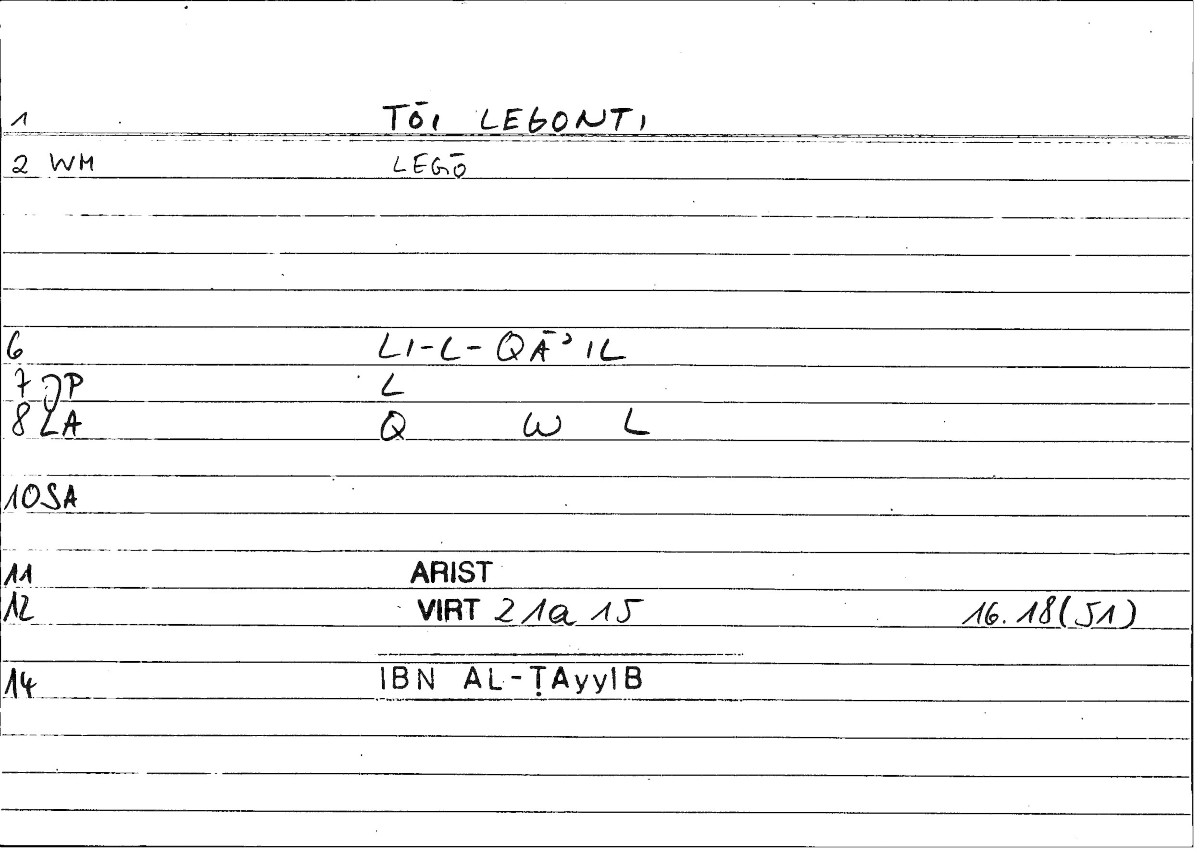 1 TŌI LEGONTI
2 WM LEGŌ
6 LI-L-QĀʾIL
7 JP L
8 LA Q W L
10 SA
11 ARIST
12 VIRT 21a 15 16.18(51)
14 IBN AL-ṬAyyIB